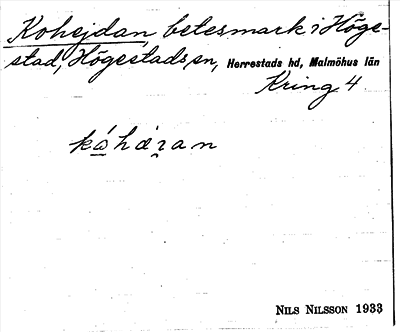 Kohejdan, betesmark i Höge-
stad, Högestads sn, Herrestads hd, Malmöhus län
Kring 4
NILS NILSSON 1933